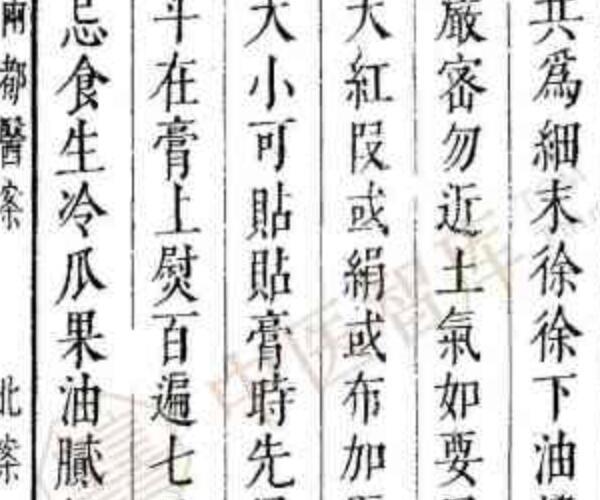 共為細末徐徐下油
嚴密勿近土氣如要
大紅段或絹或布加
大小可貼貼膏時先
斗在膏上熨百遍七
忌食生冷瓜果油膩
兩都醫案 北案
中医智库